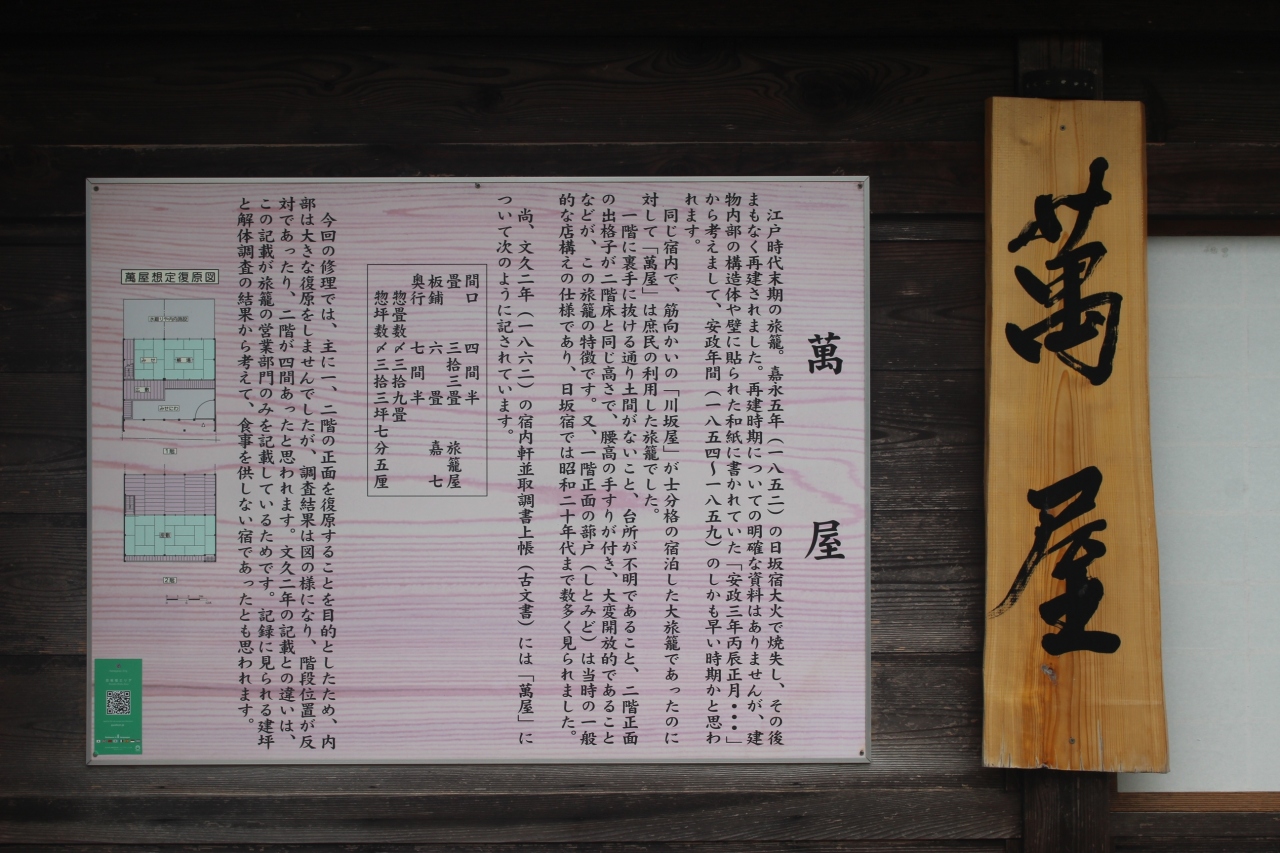 萬屋
萬屋
江戸時代末期の旅籠。嘉永五年（一八五二）の日坂宿大火で焼失し、その後
まもなく再建されました。再建時期についての明確な資料はありませんが、建
物内部の構造体や壁に貼られた和紙に書かれていた「安政三年丙辰正月・・・」
から考えまして、安政年間（一八五四〜一八五九）のしかも早い時期かと思わ
れます。
同じ宿内で、筋向かいの「川坂屋」が士分格の宿泊した大旅籠であったのに
対して「萬屋」は庶民の利用した旅籠でした。
一階に裏手に抜ける通り土間がないこと、台所が不明であること、二階正面
の出格子が二階床と同じ高さで、腰高の手すりが付き、大変開放的であること
などが、この旅籠の特徴です。又、一階正面の蔀戸（しとみど）は当時の一般
的な店構えの仕様であり、日坂宿では昭和二十年代まで数多く見られました。
尚、文久二年（一八六二）の宿内軒並取調書上帳（古文書）には「萬屋」に
ついて次のように記されています。
間口 四間半
畳 三拾三畳 旅籠屋
板鋪 六畳 嘉七
奥行 七間半
惣畳数〆三拾九畳
惣坪数〆三拾三坪七分五厘
今回の修理では、主に一、二階の正面を復原することを目的としたため、内
部は大きな復原をしませんでしたが、調査結果は図の様になり、階段位置が反
対であったり、二階が四間あったと思われます。文久二年の記載との違いは、
この記載が旅籠の営業部門のみを記載しているためです。記録に見られる建坪
と解体調査の結果から考えて、食事を供しない宿であったとも思われます。
萬屋想定復原図
1階
2階